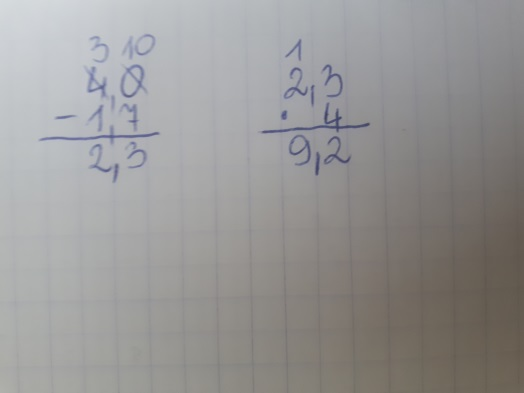 3 10
4,0
- 1,7
2,3
1
2,3
· 4
9,2